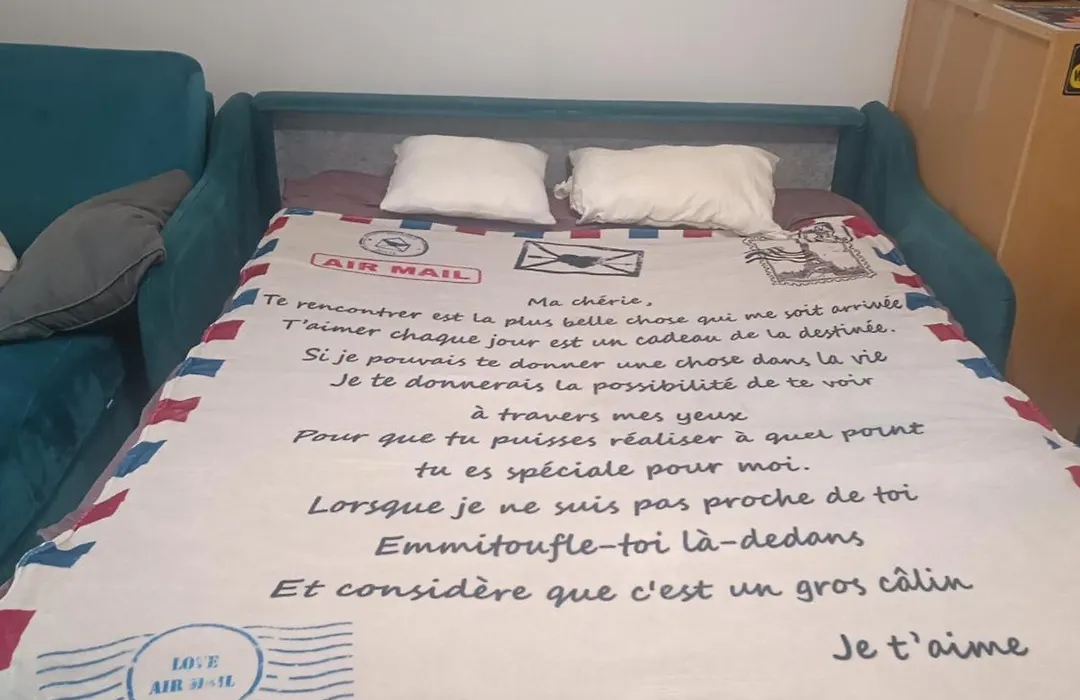 AIR MAIL
Ma chérie,
Te rencontrer est la plus belle chose qui me soit arrivée
T'aimer chaque jour est un cadeau de la destinée.
Si je pouvais te donner une chose dans la vie
Je te donnerais la possibilité de te voir
à travers mes yeux
Pour que tu puisses réaliser à quel point
tu es spéciale pour moi.
Lorsque je ne suis pas proche de toi
Emmitoufle-toi là-dedans
Et considère que c'est un gros câlin
Je t'aime
LOVE
AIR MAIL